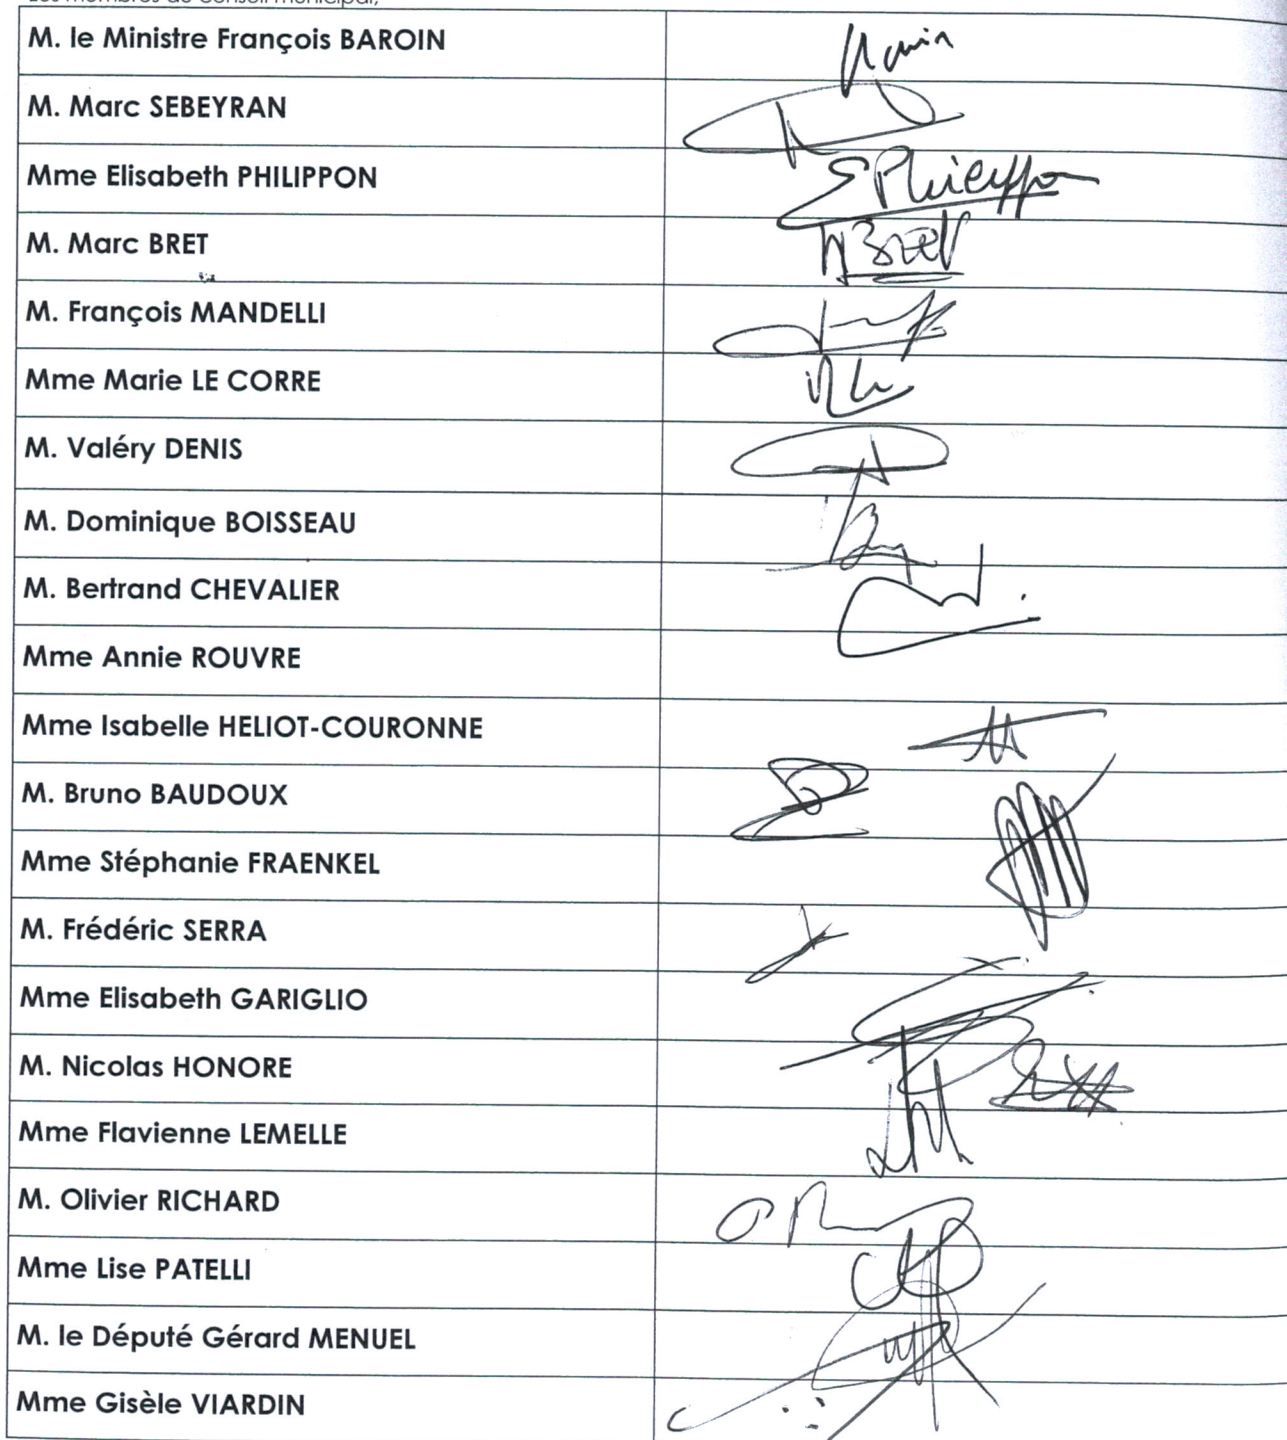 Les membres du Conseil municipal,
M. le Ministre François BAROIN
M. Marc SEBEYRAN
Mme Elisabeth PHILIPPON
E Philippon
M. Marc BRET
M Bret
M. François MANDELLI
Mme Marie LE CORRE
M. Valéry DENIS
M. Dominique BOISSEAU
M. Bertrand CHEVALIER
Mme Annie ROUVRE
Mme Isabelle HELIOT-COURONNE
M. Bruno BAUDOUX
Mme Stéphanie FRAENKEL
M. Frédéric SERRA
Mme Elisabeth GARIGLIO
M. Nicolas HONORE
Mme Flavienne LEMELLE
M. Olivier RICHARD
Mme Lise PATELLI
M. le Député Gérard MENUEL
Mme Gisèle VIARDIN